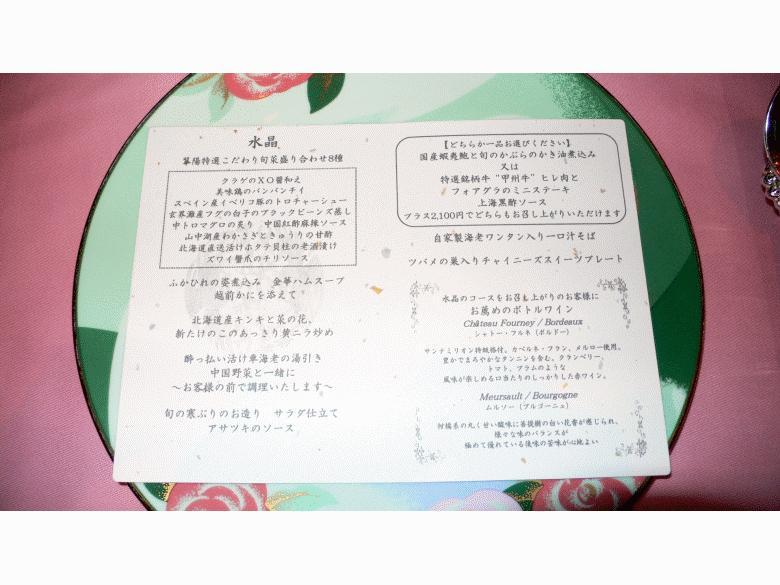 水晶
特選こだわり旬菜盛り合わせ8種
クラゲのXO醤和え
美味鶏のバンバンヂイ
スペイン産イベリコ豚のトロチャーシュー
玄界灘産フグの白子のブラックビーンズ蒸し
中トロマグロの炙り 中国紅酢麻辣ソース
山中湖産わかさぎときゅうりの甘酢
北海道直送活けホタテ貝柱の老酒漬け
ズワイ蟹爪のチリソース
ふかひれの姿煮込み 金華ハムスープ
越前かにを添えて
北海道産キンキと菜の花、
新たけのこのあっさり黄ニラ炒め
酔っ払い活け車海老の湯引き
中国野菜と一緒に
～お客様の前で調理いたします～
旬の寒ぶりのお造り サラダ仕立て
アサツキのソース
【どちらか一品お選びください】
国産蝦夷鮑と旬のかぶらのかき油煮込み
又は
特選銘柄牛“甲州牛”ヒレ肉と
フォアグラのミニステーキ
上海黒酢ソース
プラス2,100円でどちらもお召し上がりいただけます
自家製海老ワンタン入り一口汁そば
ツバメの巣入りチャイニーズスイーツプレート
水晶のコースをお召し上がりのお客様に
お薦めのボトルワイン
Château Fourney / Bordeaux
シャトー・フルネ（ボルドー）
サンテミリオン特級格付。カベルネ・フラン、メルロー使用。
豊かでまろやかなタンニンを含む。クランベリー、
トマト、プラムのような
風味が楽しめる口当たりのしっかりした赤ワイン。
Meursault / Bourgogne
ムルソー（ブルゴーニュ）
柑橘系の丸く甘い酸味に菩提樹の白い花香が感じられ、
様々な味のバランスが
極めて優れている後味の苦味が心地よい